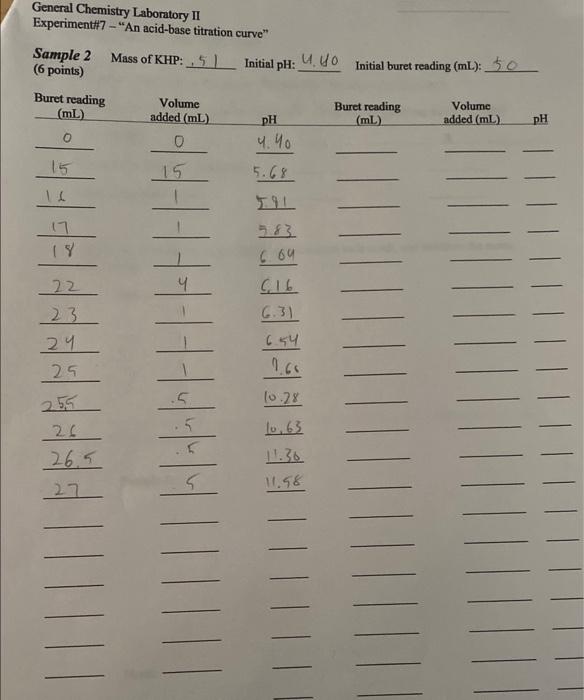 General Chemistry Laboratory II
Experiment#7 – "An acid-base titration curve"
Sample 2 Mass of KHP: .51 Initial pH: 4.40 Initial buret reading (mL): 50
(6 points)
Buret reading (mL) Volume added (mL) pH Buret reading (mL) Volume added (mL) pH
0 0 4.40
15 15 5.68
1
17 1 5.83
18 1
22 4 6.16
23 1 6.31
24 1 6.54
25 1
25.5 .5 10.28
26 .5 10.63
26.5 .5 11.36
27 5 11.58